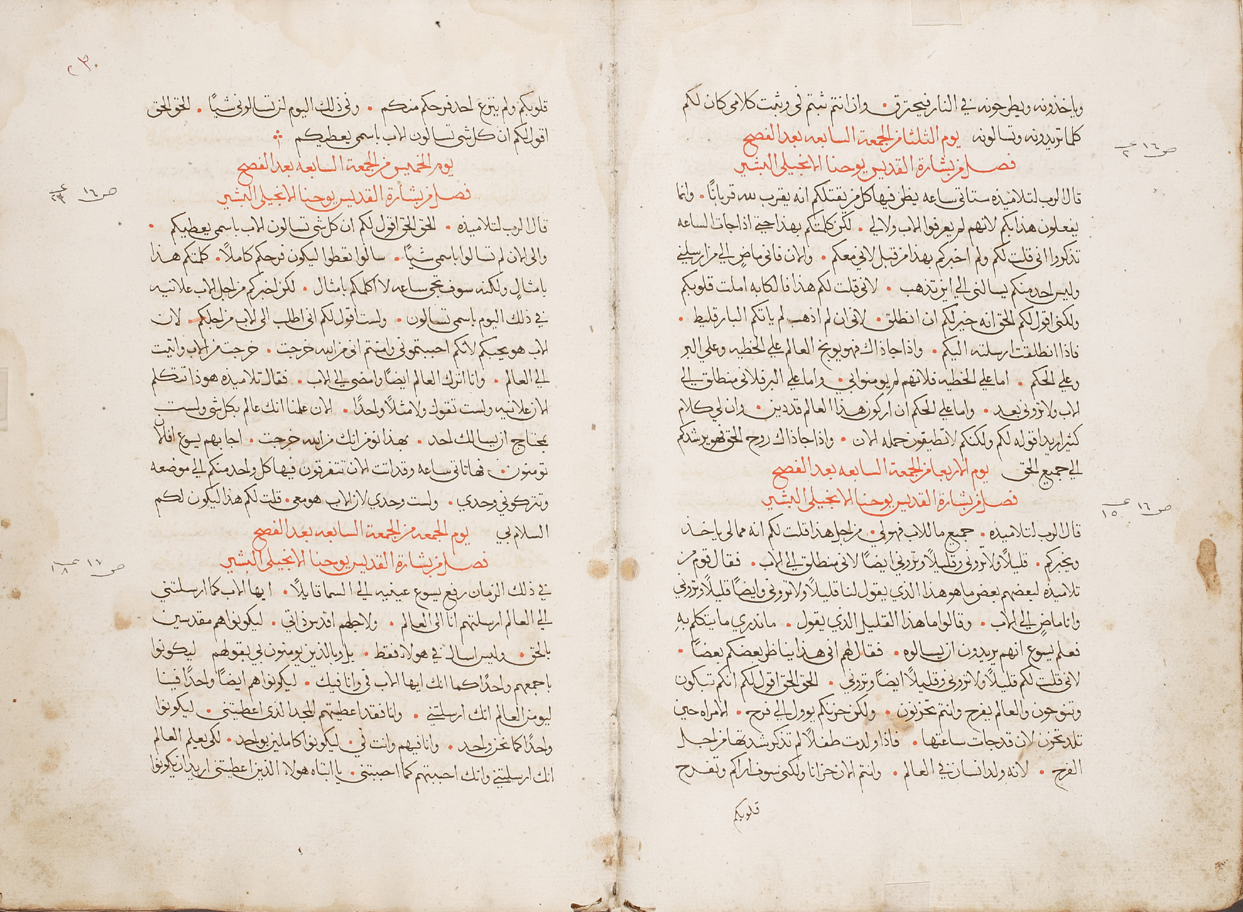 وياخذونه ويطرحونه في النار فيحترق • وان انتم ثبتم في وثبت كلامي كان لكم
كلما تريدونه وتسالونه يوم الثلثا من الجمعة السابعه بعد الفصح
ص ١٦ عـ ٢
فصل من بشارة القديس يوحنا الانجيلي البشير
قال الرب لتلاميذه ستاتي ساعه يظن فيها كل من يقتلكم انه يقرب لله قربانًا • وانما
يفعلون هذا بكم لانهم لم يعرفوا الاب ولا لي • لكن كلمتكم بهذا حتي اذا جات الساعه
تذكروا اني قلت لكم ولم اخبركم بهذا من قبل لاني معكم • والان فاني ماضٍ الي من ارسلني
وليس احد منكم يسالني الي اين تذهب • لاني قلت لكم هذا فالكابه املت قلوبكم
ولكني اقول لكم الحق انه خير لكم ان انطلق • لاني ان لم اذهب لم ياتكم البارقليط •
فاذا انطلقت ارسلته اليكم • واذا جا ذاك فهو يوبخ العالم علي الخطيه وعلي البر
وعلي الحكم • اما علي الخطيه فلانهم لم يومنوا بي • واما علي البر فلاني منطلق الي
الاب ولا تروني بعد • واما علي الحكم ان اركون هذا العالم قد دين • وان لي كلام
كثير اريد اقوله لكم ولكنكم لا تطيقون حمله الان • واذا جا ذاك روح الحق فهو يرشدكم
الي جميع الحق يوم الاربعا من الجمعة السابعه بعد الفصح
فصل من بشارة القديس يوحنا الانجيلي البشير
ص ١٦ عـ ١٥
قال الرب لتلاميذه • جميع ما للاب فهو لي • من اجل هذا قلت لكم انه مما لي ياخذ
ويخبركم • قليلًا ولا تروني وقليلًا وتروني ايضًا لاني منطلق الي الاب • فقال قوم من
تلاميذه لبعضهم بعض ما هو هذا الذي يقول لنا قليلًا ولا تروني وايضًا قليلًا وتروني
وانا ماضٍ الي الاب • وقالوا ما هذا القليل الذي يقول • ما ندري ما يتكلم به
فعلم يسوع انهم يريدون ان يسالوه • فقال لهم اني هذا يناظر بعضكم بعضًا •
لاني قلت لكم قليلًا ولا تروني وقليلًا ايضًا وتروني • الحق الحق اقول لكم انكم تبكون
وتنوحون والعالم يفرح وانتم تحزنون • ولكن حزنكم يوول الي فرح • الامراه حين
تلد تحزن لان قد جات ساعتها • فاذا ولدت طفلًا لم تذكر شدتها من اجل
الفرح • لانه ولد انسان في العالم • وانتم الان حزانا ولكني سوف اراكم وتفرح
قلوبكم
٢٣٠
قلوبكم ولم ينزع احد فرحكم منكم • وفي ذلك اليوم لن تسالوني شيًا • الحق الحق
اقول لكم ان كل شي تسالون الاب باسمي يعطيكم
يوم الخميس من الجمعة السابعه بعد الفصح
فصل من بشارة القديس يوحنا الانجيلي البشير
ص ١٦ عـ ٢٣
قال الرب لتلاميذه • الحق الحق اقول لكم ان كل شي تسالون الاب باسمي يعطيكم •
والي الان لم تسالوا باسمي شيًا • سالوا تعطوا ليكون فرحكم كاملًا • كلمتكم هذا
بامثالٍ ولكنه سوف تجي ساعه لا اكلمكم بامثال • لكن اخبركم من اجل الاب علانيه
في ذلك اليوم باسمي تسالون • ولست اقول لكم اني اطلب الي الاب من اجلكم • لان
الاب هو يحبكم لانكم احببتموني وامنتم اني من الله خرجت • خرجت من الاب واتيت
الي العالم • وانا اترك العالم ايضًا وامضي الي الاب • فقال تلاميذه هوذا تتكلم
الان علانيه ولست تقول ولا مثلًا واحدًا • الان علمنا انك عالم بكل شي ولست
بمحتاج ان يسالك احد • بهذا نومن انك من الله خرجت • اجابهم يسوع افالان
تومنون • فها تاتي ساعه وقد اتت الان تتفرقون فيها كل واحد منكم الي موضعه
وتتركوني وحدي • ولست وحدي لان الاب هو معي • قلت لكم هذا ليكون لكم
السلام بي يوم الجمعه من الجمعة السابعه بعد الفصح
فصل من بشارة القديس يوحنا الانجيلي البشير
ص ١٧ عـ ١٨
في ذلك الزمان رفع يسوع عينيه الي السما قايلًا • ايها الاب كما ارسلتني
الي العالم ارسلتهم انا الي العالم • ولاجلهم اقدس ذاتي • ليكونوا هم مقدسين
بالحق • وليس اسال في هولا فقط • بل وبالذين يومنون بي بقولهم ليكونوا
باجمعهم واحدًا كما انك ايها الاب في وانا فيك • ليكونوا هم ايضًا واحدًا فينا
ليومن العالم انك ارسلتني • وانا فقد اعطيتهم المجد الذي اعطيتني • ليكونوا
واحدًا كما نحن واحد • وانا فيهم وانت في • ليكونوا كاملين بواحد • لكي يعلم العالم
انك ارسلتني وانك احببتهم كما احببتني • يا ابتاه هولا الذين اعطيتني اريد ان يكونوا